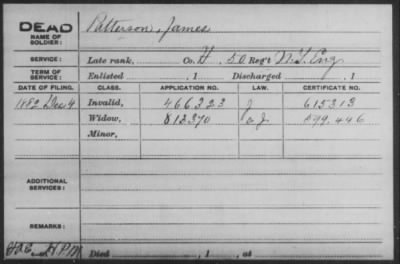 DEAD
NAME OF SOLDIER: Patterson, James
SERVICE: Late rank, Co. H, 50 Reg't N.Y. Eng
TERM OF SERVICE: Enlisted , 1 Discharged , 1
DATE OF FILING. CLASS. APPLICATION NO. LAW. CERTIFICATE NO.
1882 Dec 4 Invalid, 466323 615313
Widow, 812370 599.446
Minor,
ADDITIONAL SERVICES:
REMARKS:
Died , 1 , at